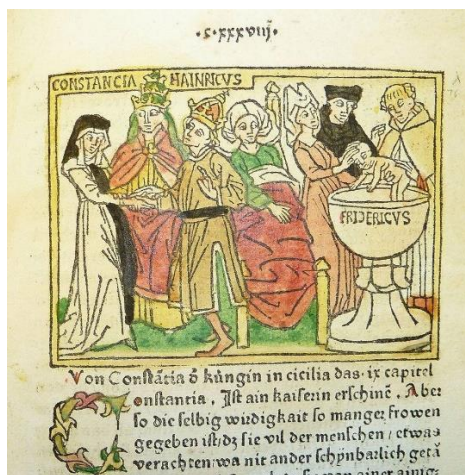 ·c·xxxviij·
CONSTANCIA HAINRICVS
FRIDERICVS
Von Constãtia ð küngin in cicilia das·ix capitel
Constantia, Ist ain kaiserin erschinẽ. Aber
so die selbig wirdigkait so manger frowen
gegeben ist/dz sie vil der menschen/etwas
verachten/wa nit ander schynbarlich getã